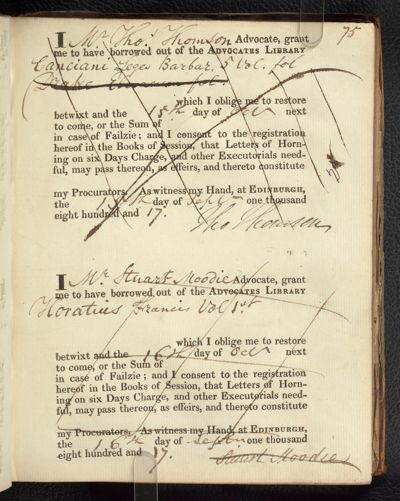 75
I Mr. Thos. Thomson Advocate, grant
me to have borrowed out of the ADVOCATES LIBRARY
Canciani Leges Barbar. 5 Vol. fol
Drake fol.
which I oblige me to restore
betwixt and the 15th day of Octr next
to come, or the Sum of
in case of Failzie; and I consent to the registration
hereof in the Books of Session, that Letters of Horn-
ing on six Days Charge, and other Executorials need-
ful, may pass thereon, as effeirs, and thereto constitute
my Procurators. As witness my Hand, at EDINBURGH,
the 15th day of Septr one thousand
eight hundred and 17.
Tho Thomson
I Mr. Stuart Moodie Advocate, grant
me to have borrowed out of the ADVOCATES LIBRARY
Horatius Francis Vol 1st
which I oblige me to restore
betwixt and the 16th day of Octr next
to come, or the Sum of
in case of Failzie; and I consent to the registration
hereof in the Books of Session, that Letters of Horn-
ing on six Days Charge, and other Executorials need-
ful, may pass thereon, as effeirs, and thereto constitute
my Procurators. As witness my Hand, at EDINBURGH,
the 16th day of Septr one thousand
eight hundred and 17.
Stuart Moodie